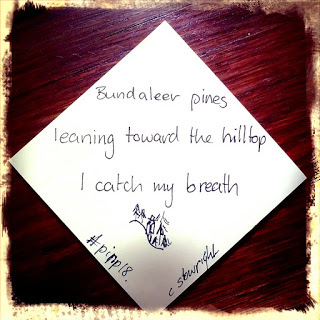 Bundaleer pines
leaning toward the hilltop
I catch my breath
#pipp18.